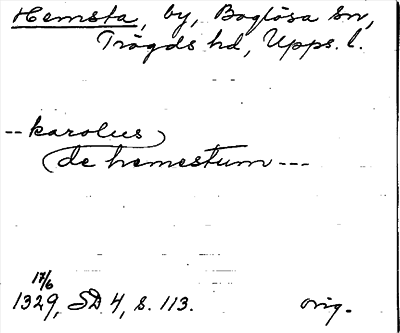 Hemsta, by, Boglösa sn,
Trögds hd, Upps. l.
-- karolus
de hemestum ---
17/6
1329, SD 4, s. 113. orig.